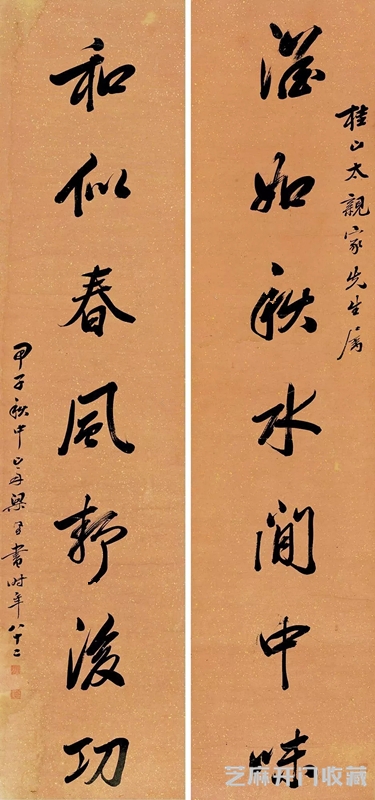 桂山太親家先生属
澹如秋水閒中味
和似春風靜後功
甲子秋中山舟梁同書时年八十二
芝麻开门收藏